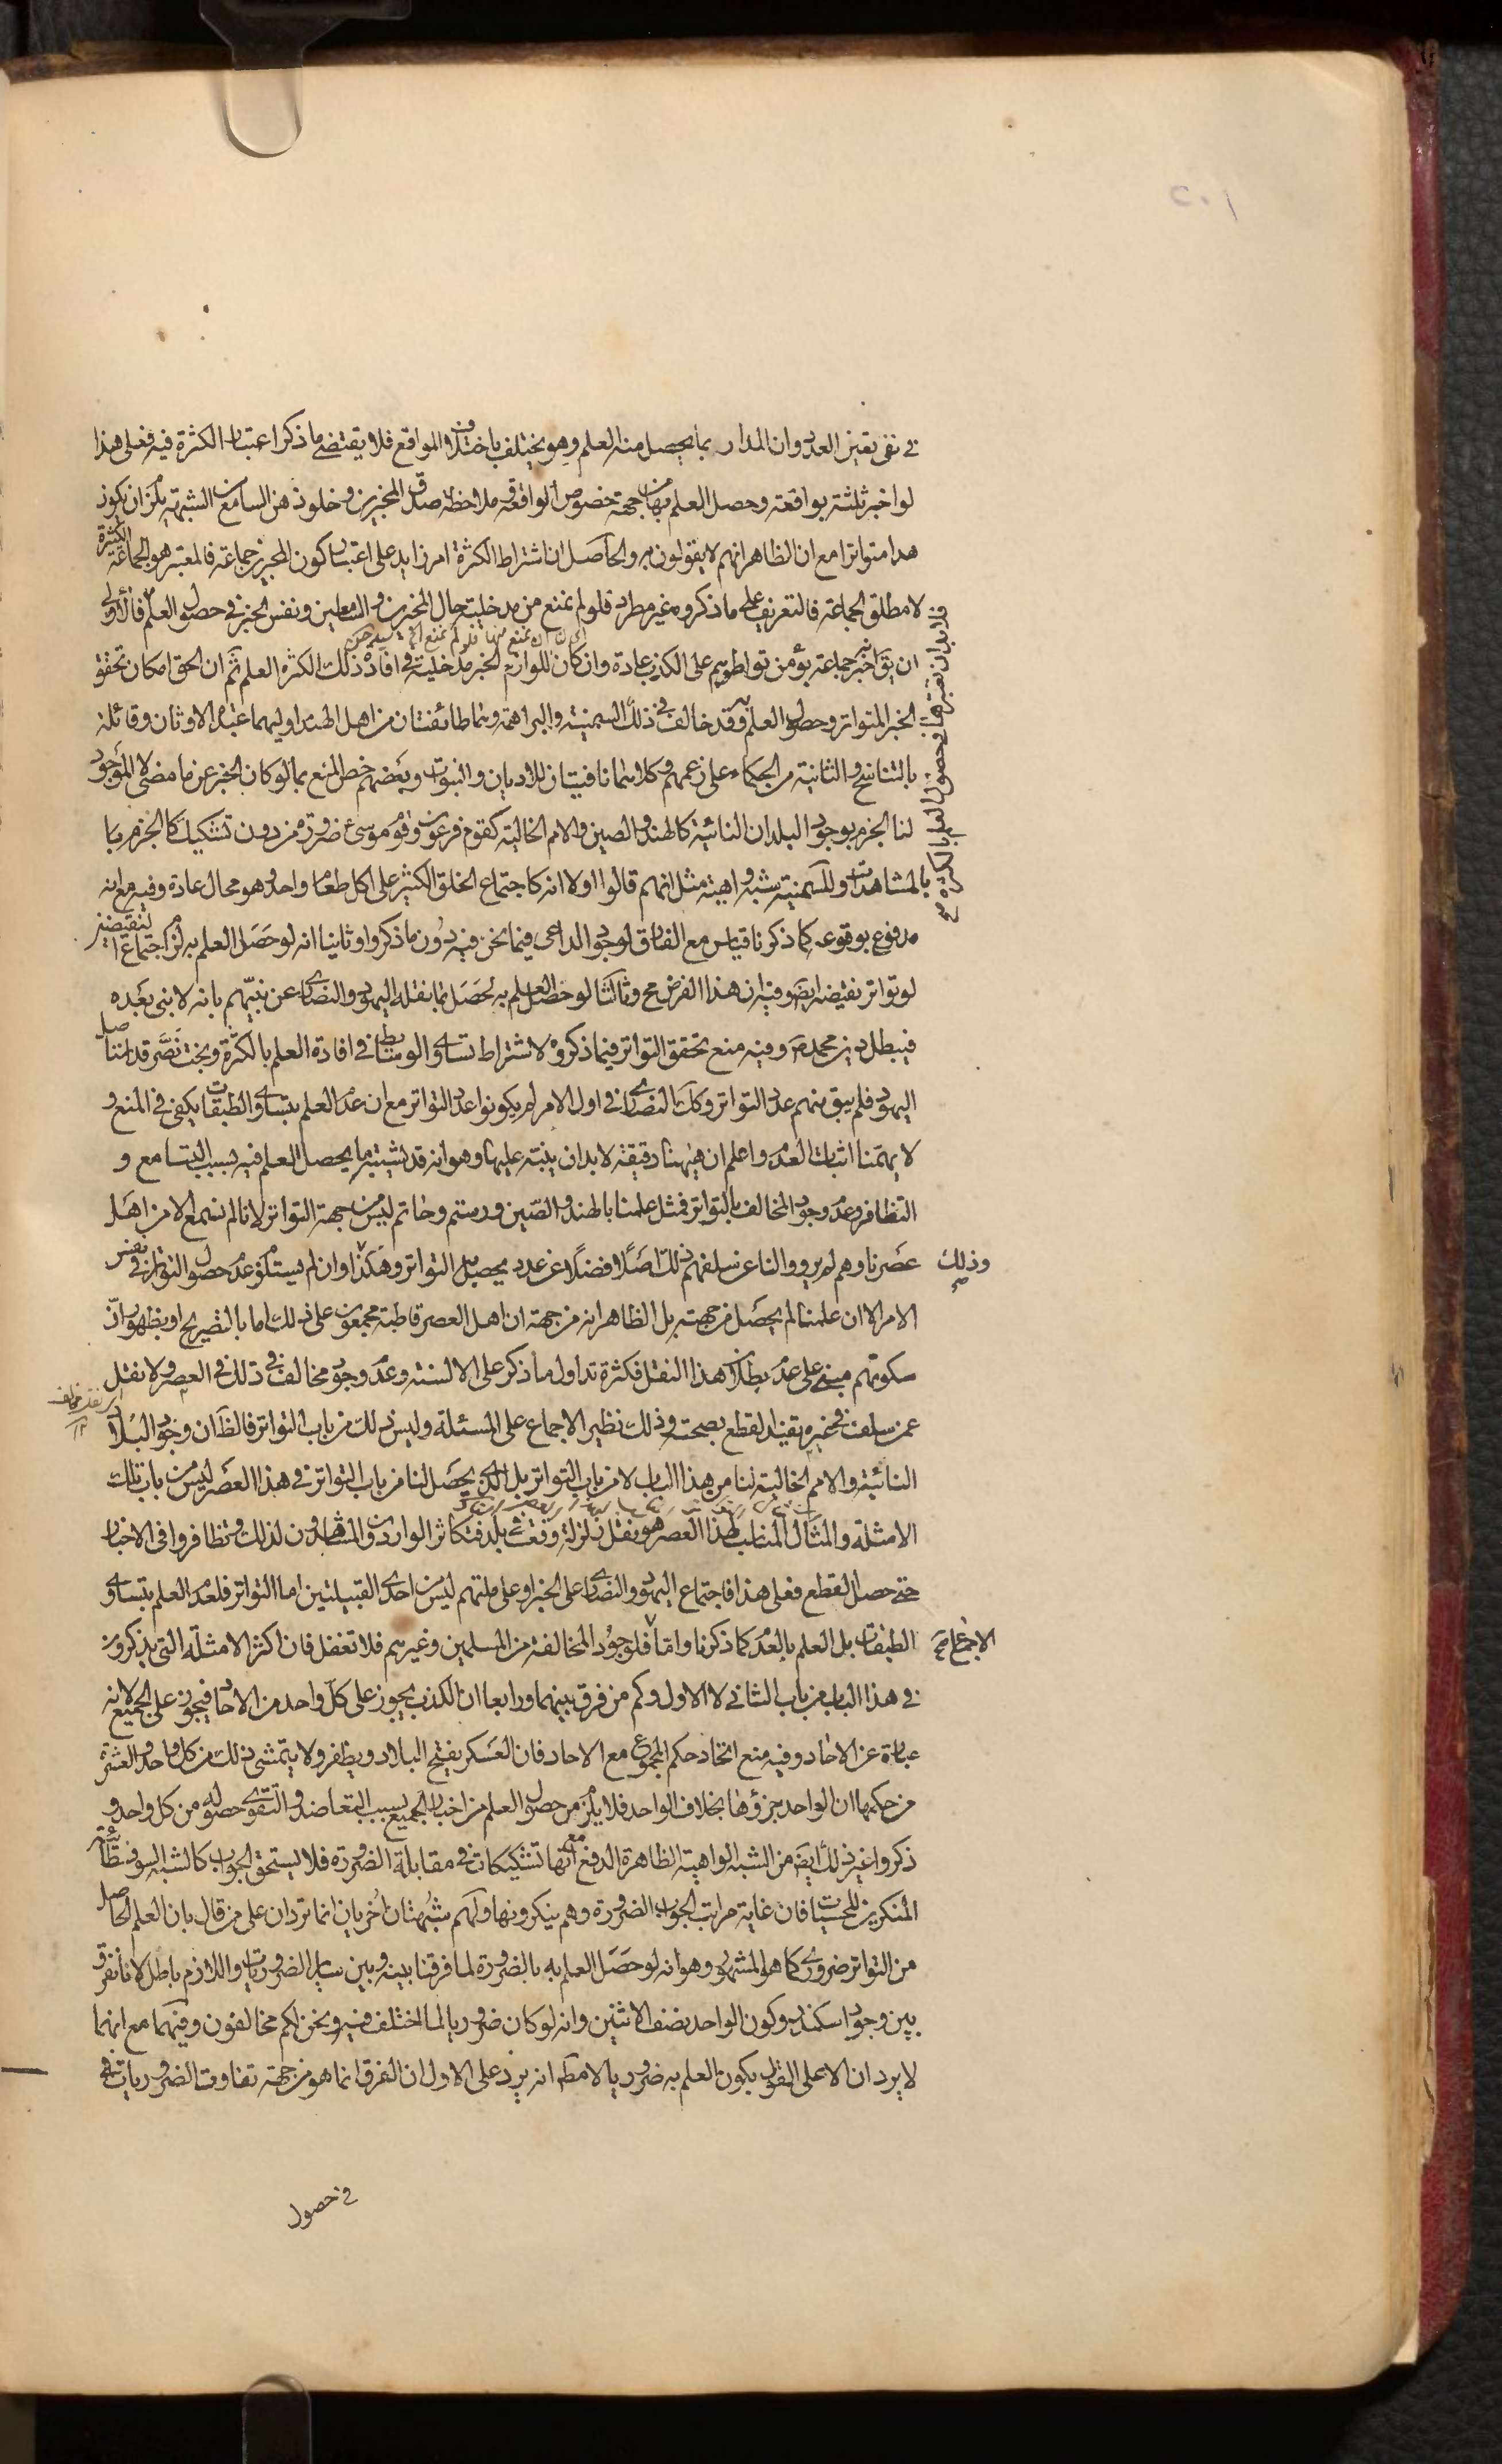 ٢٠١
في نفي تعيين العدد وان المدار بما يحصل منه العلم وهو يختلف باختلاف المواقع فلا يقتضي ما ذكر اعتبار الكثرة فيه فعلى هذا
لو اخبر ثلثة بواقعة وحصل العلم بها من جهة خصوص الواقعة وملاحظة صدق المخبرين وخلو ذهن السامع من الشبهة يلزم ان يكون
هذا متواترا مع ان الظاهر انهم لا يقولون به والحاصل ان اشتراط الكثرة امر زايد على اعتبار كون المخبرين جماعة فالمعتبر هو الجماعة الكثيرة
لا مطلق الجماعة فالتعريف على ما ذكروه غير مطرد فلو لم نمنع من مدخلية حال المخبرين والسامعين ونفس الخبر في حصول العلم فالاولى
ان يق خبر جماعة يؤمن تواطؤهم على الكذب عادة وان كان للوازم الخبر مدخلية في افادة ذلك الكثرة العلم ثم ان الحق امكان تحقق
الخبر المتواتر وحصول العلم به وقد خالف في ذلك السمنية والبراهمة وهما طائفتان من اهل الهند اوليهما عبدة الاوثان وقائلة
بالتناسخ والثانية من الحكماء على زعمهم وكلاهما نافيتان للاديان والنبوات وبعضهم خص المنع بما لو كان الخبر عن ما مضى لا الموجود
لنا الجزم بوجود البلدان النائية كالهند والصين والامم الخالية كقوم فرعون وقوم موسى ع ضرورة من دون تشكيك كالجزم با
بالمشاهدات وللسمنية شبه واهية مثل انهم قالوا اولا انه كاجتماع الخلق الكثير على اكل طعام واحد وهو محال عادة وفيه مع انه
مدفوع بوقوعه كما ذكرنا قياس مع الفارق لوجود الداعي فيما نحن فيه دون ما ذكروا وثانيا انه لو حصل العلم به لزم اجتماع النقيضين
لو تواتر نقيضه ايضا وفيه ان هذا الفرض مح وثالثا لو حصل العلم به لحصل بما نقله اليهود والنصارى عن نبيهم بانه لا نبي بعده
فيبطل دين محمد ص وفيه منع تحقق التواتر فيما ذكروه لاشتراط تساوي الوسائط في افادة العلم بالكثرة وبخت نصر قد استاصل
اليهود فلم يبق منهم عدد التواتر وكذا النصارى في اول الامر لم يكونوا عدد التواتر مع ان عدم العلم بتساوي الطبقات يكفي في المنع و
لا يهمنا اثبات العدم واعلم ان هيهنا دقيقة لا بد ان ينبه عليها وهو انه قد يشتبه ما يحصل العلم فيه بسبب التسامع و
التظافر وعدم وجود المخالف بالتواتر فمثل علمنا بالهند والصين ورستم وحاتم ليس من جهة التواتر لانا لم نسمع الا من اهل
عصرنا وهم لم يرووا لنا عن سلفهم ذلك اصلا فضلا عن عدد يحصل به التواتر وهكذا وان لم يستلزم عدم حصول التواتر في نفس
وذلك
الامر الا ان علمنا لم يحصل من جهته بل الظاهر انه من جهة ان اهل العصر قاطبة مجمعون على ذلك اما بالتصريح او بظهور ان
سكوتهم مبني على عدم بطلان هذا النقل فكثرة تداول ما ذكر على الالسنة وعدم وجود مخالف في ذلك في العصر ولا نقل
عمن سلف في غيره يفيد القطع بصحته وذلك نظير الاجماع على المسئلة وليس ذلك من باب التواتر فالظ ان وجود البلاد
النائية والامم الخالية لنا من هذا الباب لا من باب التواتر بل الذي يحصل لنا من باب التواتر في هذا العصر ليس من باب تلك
الامثلة والمثال المناسب لهذا العصر هو نقل زلزلة وقعت في بلد فتكاثر الواردون والمشاهدون لذلك وتظافروا في الاخبار
حتى حصل القطع فعلى هذا فاجتماع اليهود والنصارى على الخبر او على ملتهم ليس من احدى القبيلتين اما التواتر فلعدم العلم بتساوي
الطبقات بل العلم بالعدم كما ذكرنا واما فلوجود المخالفة من المسلمين وغيرهم فلا تغفل فان اكثر الامثلة التي يذكرون
الاجماع
في هذا الباب من باب الثاني لا الاول وكم من فرق بينهما ورابعا ان الكذب يجوز على كل واحد من الاحاد فيجوز على الجميع لانه
عبارة عن الاحاد وفيه منع اتحاد حكم المجموع مع الاحاد فان العسكر يفتح البلاد ويظفر ولا يتمشى ذلك من كل واحد والعشرة
من حكمها ان الواحد جزؤها بخلاف الواحد فلا يلزم من حصول العلم من اخبار الجميع بسبب التعاضد والتقوي حصوله من كل واحد و
ذكروا غير ذلك ايضا من الشبه الواهية الظاهرة الدفع مع انها تشكيكات في مقابلة الضرورة فلا يستحق الجواب كالشبه السوفسطائية
المنكرين للحسيات فان غاية مراتب الجواب الضرورة وهم ينكرونها ولهم شبهتان اخريان انما تردان على من قال بان العلم الحاصل
من التواتر ضروري كما هو المشهور وهو انه لو حصل العلم به بالضرورة لما فرقنا بينه وبين ساير الضروريات واللازم باطل لانا نفرق
بين وجود اسكندر وكون الواحد نصف الاثنين وانه لو كان ضروريا لما اختلف فيه ونحن لكم مخالفون وفيهما مع انهما
لا يردان الا على القول بكون العلم به ضروريا لا مط انه يرد على الاول ان الفرق انما هو من جهة تفاوت الضروريات في
في حصول